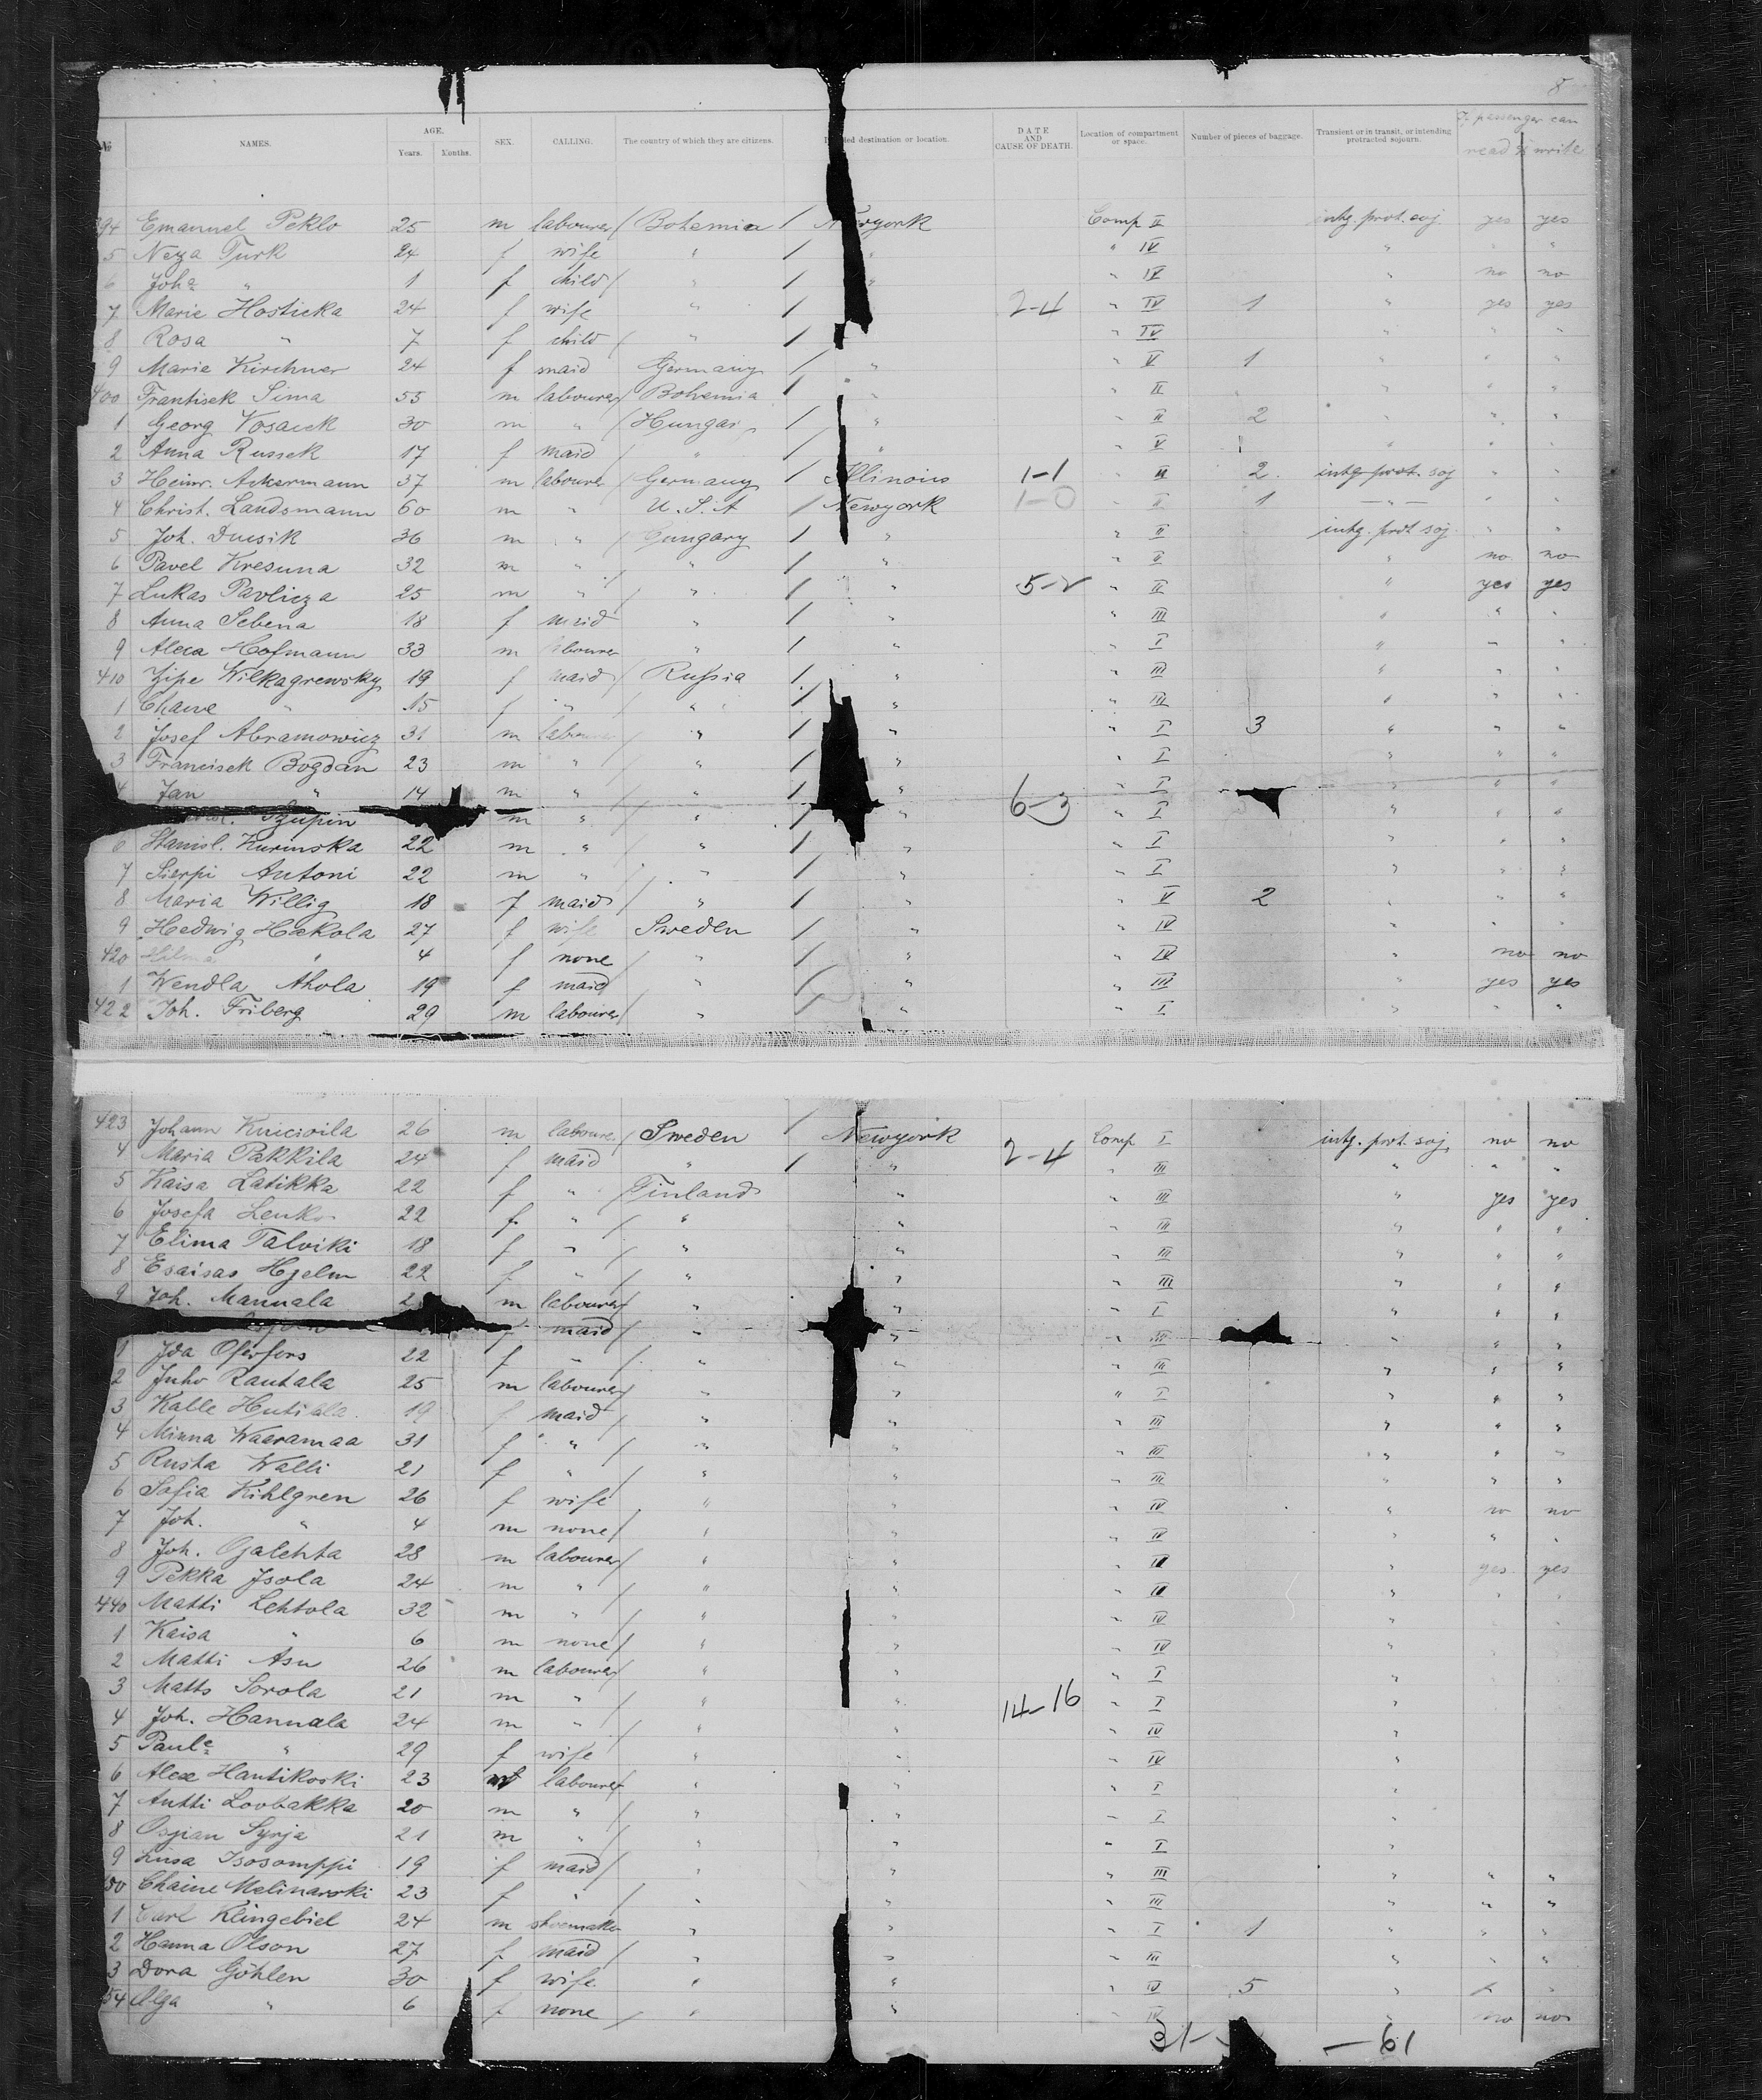 8
No NAMES. AGE. Years. Months. SEX. CALLING. The country of which they are citizens. destination or location. DATE AND CAUSE OF DEATH. Location of compartment or space. Number of pieces of baggage. Transient or in transit, or intending protracted sojourn. If passenger can read & write
394 Emanuel Peklo 25 m labourer Bohemia Newyork Comp II intg. prot. soj yes yes
5 Neza Turk 24 f wife " " " IV " " "
6 Joha " 1 f child " " " IV " no no
7 Marie Hosticka 24 f wife " 2-4 " IV 1 " yes yes
8 Rosa " 7 f child " " IV " " "
9 Marie Kirchner 24 f maid Germany " " V 1 " " "
400 Frantisek Sima 55 m labourer Bohemia " " II " " "
1 Georg 30 m " Hungary " " II 2 " " "
2 Anna Russek 17 f maid " " " V " " "
3 Heinr. Ackermann 37 m labourer Germany Illinois 1-1 " II 2 intg. prot. soj " "
4 Christ. Landsmann 60 m " U.S.A Newyork 1-0 " II 1 — " — " "
5 Joh. Ducsik 36 m " Hungary " " II intg. prot soj. " "
6 Pavel Kresuna 32 m " " " " II " no no
7 Lukas Pavlicza 25 m " " " 5-2 " II " yes yes
8 Anna Sebena 18 f maid " " " III " " "
9 Alexa Hofmann 33 m labourer " " " I " " "
410 Zipe Wilkagrewsky 19 f maid Russia " " III " " "
1 Chawe " 15 f " " " " III " " "
2 Josef Abramowicz 31 m labourer " " " I 3 " " "
3 Francisek Bogdan 23 m " " " " I " " "
4 Jan " 14 m " " " " I " " "
Szupin m " " " 6-3 " I " " "
6 Stanisl. Kurinska 22 m " " " " I " " "
7 Sierpi Antoni 22 m " " " " I " " "
8 Maria Willig 18 f maid " " " V 2 " " "
9 Hedwig Hakola 27 f wife Sweden " " IV " " "
420 Hilma " 4 f none " " " IV " no no
1 Wendla Ahola 19 f maid " " " III " yes yes
422 Joh. Friberg 29 m labourer " " " I " " "
423 Johann 26 m labourer Sweden Newyork Comp I intg. prot. soj. no no
4 Maria Pakkila 24 f maid " " 2-4 " III " " "
5 Kaisa Latikka 22 f " Finland " " III " yes yes
6 Josefa Lenko 22 f " " " " III " " "
7 Elima Talviki 18 f " " " " III " " "
8 Esaisas Hjelm 22 f " " " " III " " "
9 Joh. Mannala m labourer " " " I " " "
f maid " " " III " " "
1 Ida 22 f " " " " III " " "
2 Juho Rautala 25 m labourer " " " I " " "
3 Kalle 19 f maid " " " III " " "
4 Minna Waaramaa 31 f " " " " III " " "
5 Rusta Walli 21 f " " " " III " " "
6 Sofia Kihlgren 26 f wife " " " IV " no no
7 Joh. " 4 m none " " " IV " "
8 Joh. Ojalehta 28 m labourer " " " III " yes yes
9 Pekka Isola 24 m " " " " III " " "
440 Matti Lehtola 32 m " " " " IV "
1 Kaisa " 6 m none " " " IV "
2 Matti Asu 26 m labourer " " " I "
3 Matts Sorola 21 m " " " 14-16 " I "
4 Joh. Hannala 24 m " " " " IV "
5 Paule " 29 f wife " " " IV "
6 Alex Hautikoski 23 m labourer " " " I "
7 Antti Loobakka 20 m " " " " I "
8 Osgian Syrja 21 m " " " " I "
9 Liisa Isosomppi 19 f maid " " " III " " "
450 Chaine Melinarski 23 f " " " " III " " "
1 Carl Klingebiel 24 m shoemaker " " " I 1 " " "
2 Hanna Olson 27 f maid " " " III " " "
3 Dora Göhlen 30 f wife " " " IV 5 " " "
54 Olga " 6 f none " " " IV no no
— 61